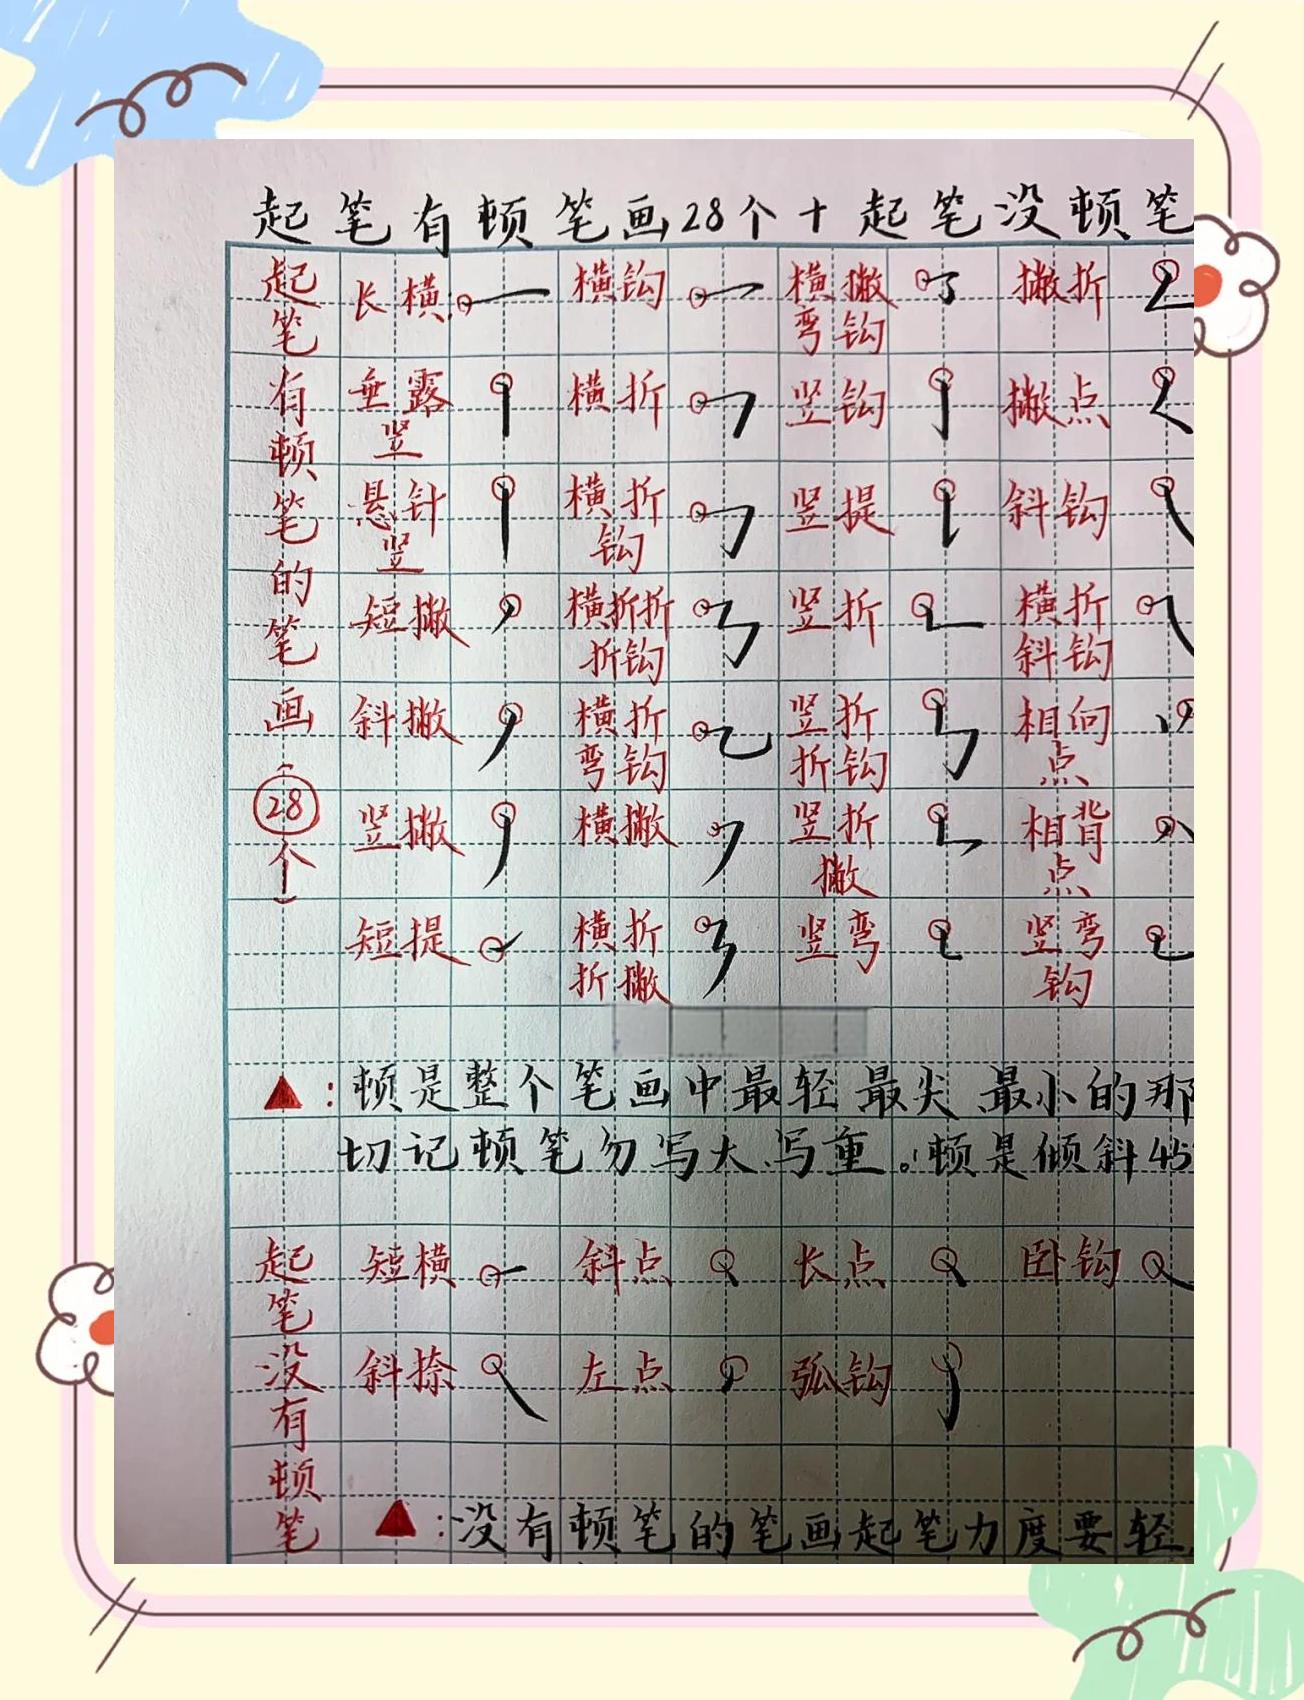 起笔有顿笔画28个+起笔没顿笔
起笔有顿笔的笔画(28个)
长横 横钩 横撇弯钩 撇折
垂露竖 横折 竖钩 撇点
悬针竖 横折钩 竖提 斜钩
短撇 横折折折钩 竖折 横折斜钩
斜撇 横折弯钩 竖折折钩 相向点
竖撇 横撇 竖折撇 相背点
短提 横折折撇 竖弯 竖弯钩
▲:顿是整个笔画中最轻最尖最小的那
切记顿笔勿写大、写重。顿是倾斜45
起笔没有顿笔
短横 斜点 长点 卧钩
斜捺 左点 弧钩
▲:没有顿笔的笔画起笔力度要轻,